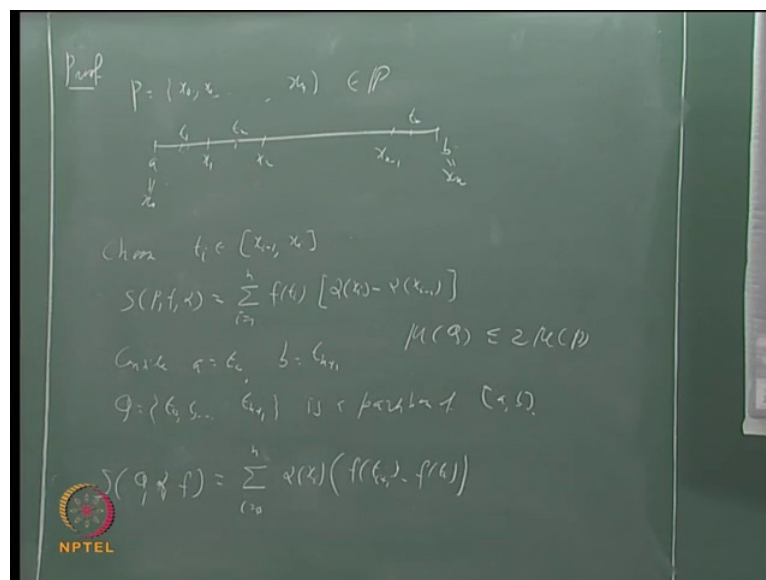 Proof
P = {x₀, x₁, ... , xₙ} ∈ ℙ
t₁ t₂ tₙ
a x₁ x₂ xₙ₋₁ b
|| ||
x₀ xₙ
Choose tᵢ ∈ [xᵢ₋₁, xᵢ]
S(P, f, α) = Σ f(tᵢ) [α(xᵢ) - α(xᵢ₋₁)]
n
i=1
μ(Q) ≤ 2 μ(P)
a = t₀, b = tₙ₊₁
Q = {t₀, t₁ ... tₙ₊₁} is a partition of [a, b].
S(Q, α, f) = Σ α(xᵢ) (f(tᵢ₊₁) - f(tᵢ))
n
i=0
NPTEL